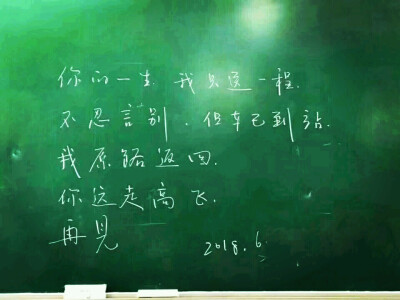 你的一生 我只送一程.
不忍言别，但车已到站.
我原路返回
你远走高飞.
再见
2018.6